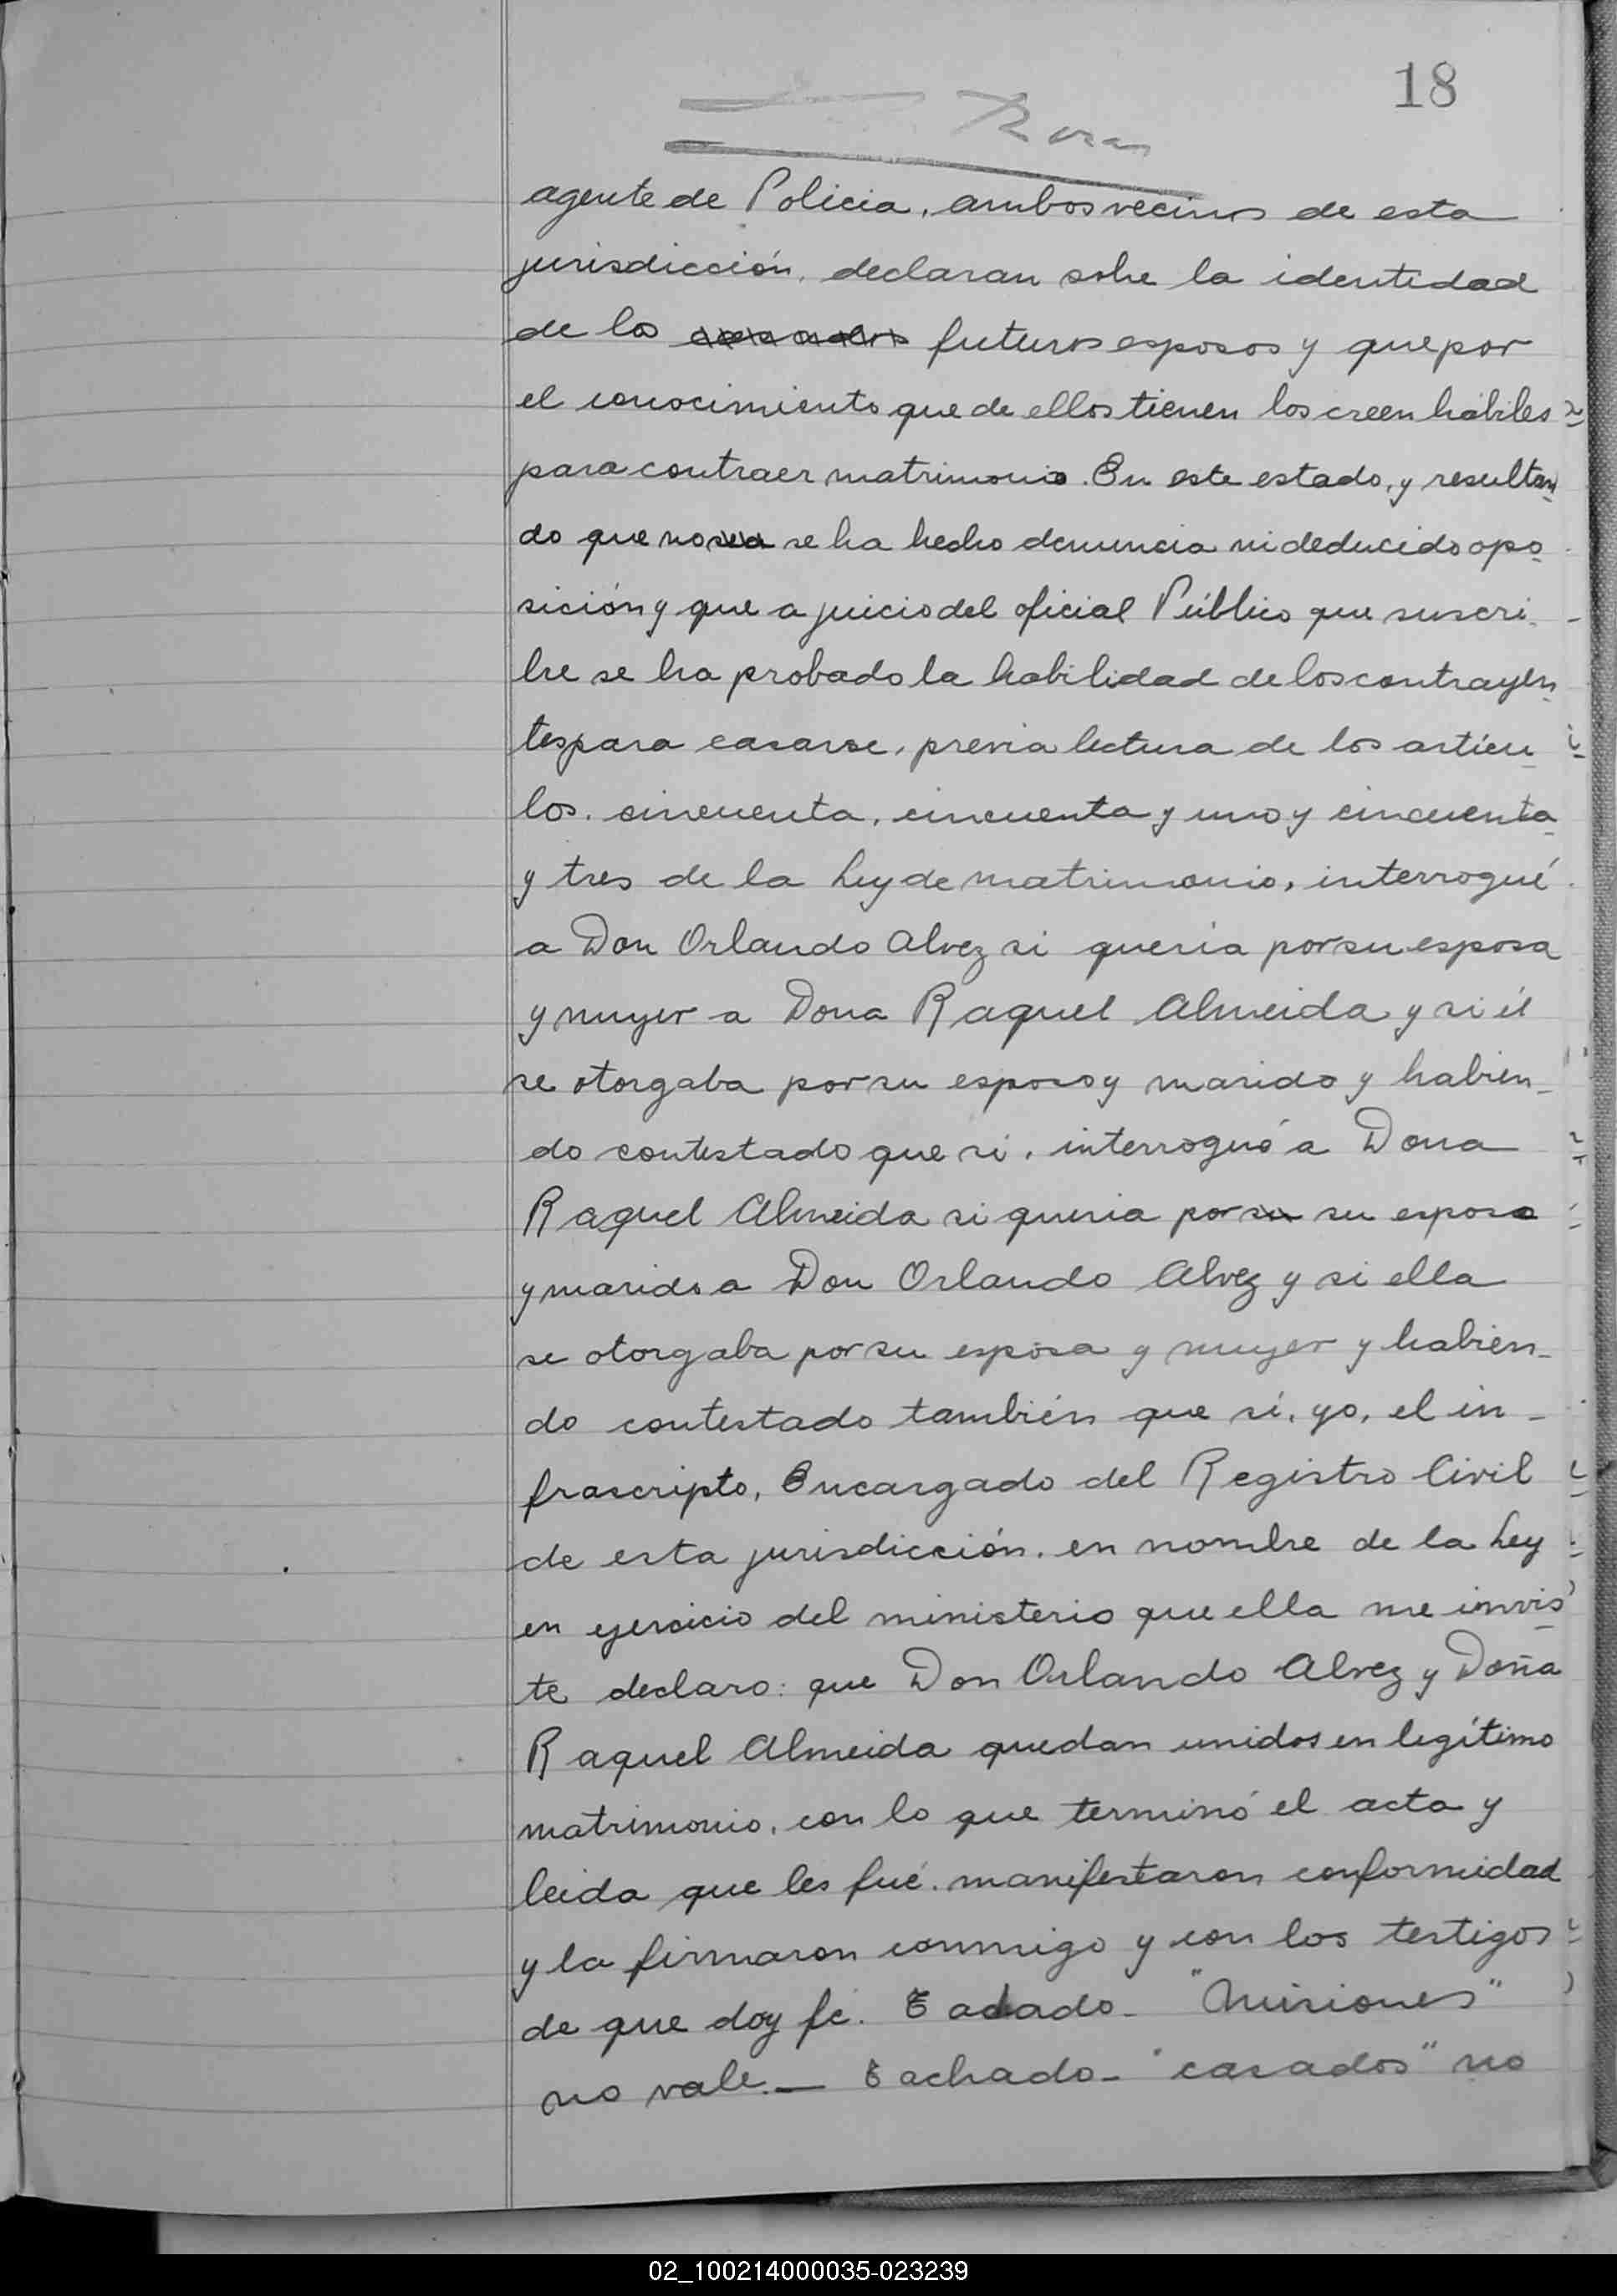 18
agente de Policia, ambos vecinos de esta
jurisdicción, declaran sobre la identidad
de los casados futuros esposos y que por
el conocimiento que de ellos tienen los creen hábiles
para contraer matrimonio. En este estado, y resultan
do que no se ha hecho denuncia ni deducido opo
sición y que a juicio del oficial Público que suscri
bre se ha probado la habilidad de los contrayen
tes para casarse, previa lectura de los artícu
los, cincuenta, cincuenta y uno y cincuenta
y tres de la Ley de matrimonio, interrogué
a Don Orlando Alvez si queria por su esposa
y muyer a Dona Raquel Almeida y si él
se otorgaba por su esposo y marido y habien-
do contestado que si, interrogué a Dona
Raquel Almeida si queria por su su esposo
y marido a Don Orlando Alvez y si ella
se otorgaba por su esposa y muyer y habien-
do contestado también que sí, yo, el in-
frascripto, Encargado del Registro Civil
de esta jurisdicción, en nombre de la Ley
en ejercicio del ministerio que ella me invis
te declaro: que Don Orlando Alvez y Doña
Raquel Almeida quedan unidos en legítimo
matrimonio, con lo que terminó el acta y
leida que les fué, manifestaron conformidad
y la firmaron conmigo y con los testigos
de que doy fé. Tachado - "Misiones"
no vale. — Tachado - "casados" no
02_100214000035-023239